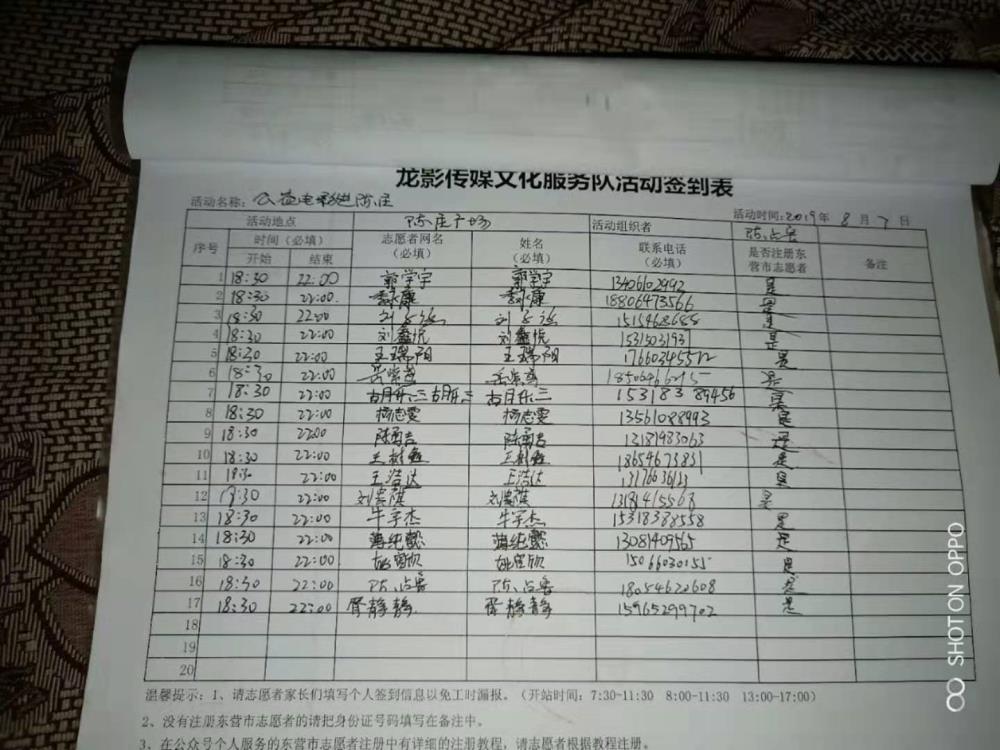 龙影传媒文化服务队活动签到表
活动名称：公益电影进陈庄 活动时间：2019年 8 月 7 日
活动地点 陈庄广场 活动组织者 陈占岳
序号 时间（必填） 志愿者网名（必填） 姓名（必填） 联系电话（必填） 是否注册东营市志愿者 备注
开始 结束
1 18:30 22:00 郭学宇 郭学宇 13406102992 是
2 18:30 22:00 李永康 李永康 18806473566 是
3 18:30 22:00 刘 刘 1515468685 是
4 18:30 22:00 刘鑫悦 刘鑫悦 1531503193 是
5 18:30 22:00 王瑞阳 王瑞阳 17660345512 是
6 18:30 22:00 岳崇 岳崇 是
7 18:30 22:00 15318389456 是
8 18:30 22:00 杨志雯 杨志雯 13561088993 是
9 18:30 22:00 陈勇吉 陈勇吉 13181983063 是
10 18:30 22:00 王树 王树 18654673831 是
11 18:30 22:00 王浩达 王浩达 13176636123 是
12 18:30 22:00 刘崇旗 刘崇旗 13181415568 是
13 18:30 22:00 牛宇杰 牛宇杰 15318388558 是
14 18:30 22:00 薄纯懿 薄纯懿 13081409565 是
15 18:30 22:00 欣 欣 15066030155 是
16 18:30 22:00 陈占岳 陈占岳 18054622608 是
17 18:30 22:00 胥静静 胥静静 15965299702 是
18
19
20
温馨提示：1、请志愿者家长们填写个人签到信息以免工时漏报。（开站时间：7:30-11:30 8:00-11:30 13:00-17:00）
2、没有注册东营市志愿者的请把身份证号码填写在备注中。
3、在公众号个人服务的东营市志愿者注册中有详细的注册教程，请志愿者根据教程注册。
SHOT ON OPPO